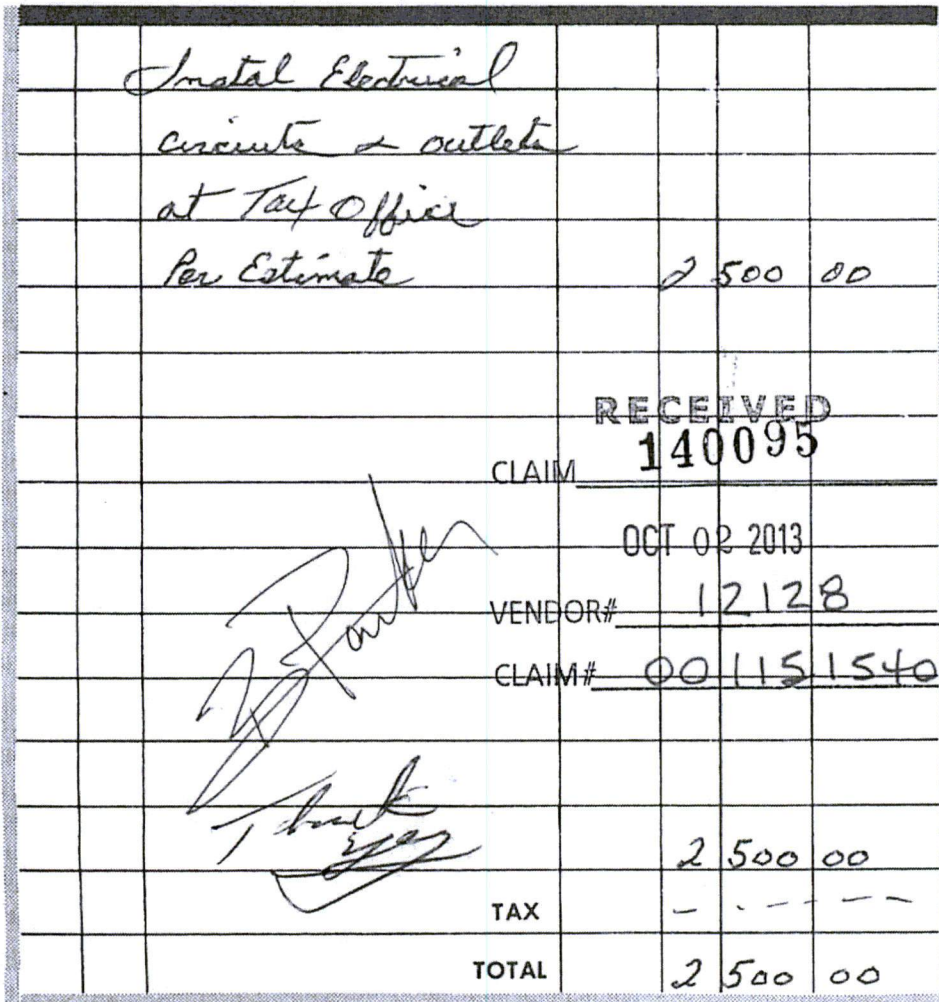 Instal Electrical
circuits & outlets
at Tax Office
Per Estimate 2 500 00
RECEIVED
CLAIM 140095
OCT 02 2013
VENDOR# 12128
CLAIM# 001151540
Thank
You
2 500 00
TAX - - - - -
TOTAL 2 500 00